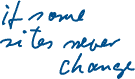 if some
sites never
change